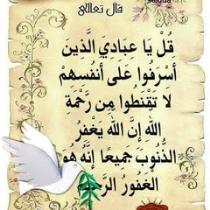 قال تعالى
قُلْ يَا عِبَادِيَ الَّذِينَ
أَسْرَفُوا عَلَى أَنفُسِهِمْ
لَا تَقْنَطُوا مِن رَّحْمَةِ
اللهِ إِنَّ اللهَ يَغْفِرُ
الذُّنُوبَ جَمِيعًا إِنَّهُ هُوَ
الْغَفُورُ الرَّحِيمُ